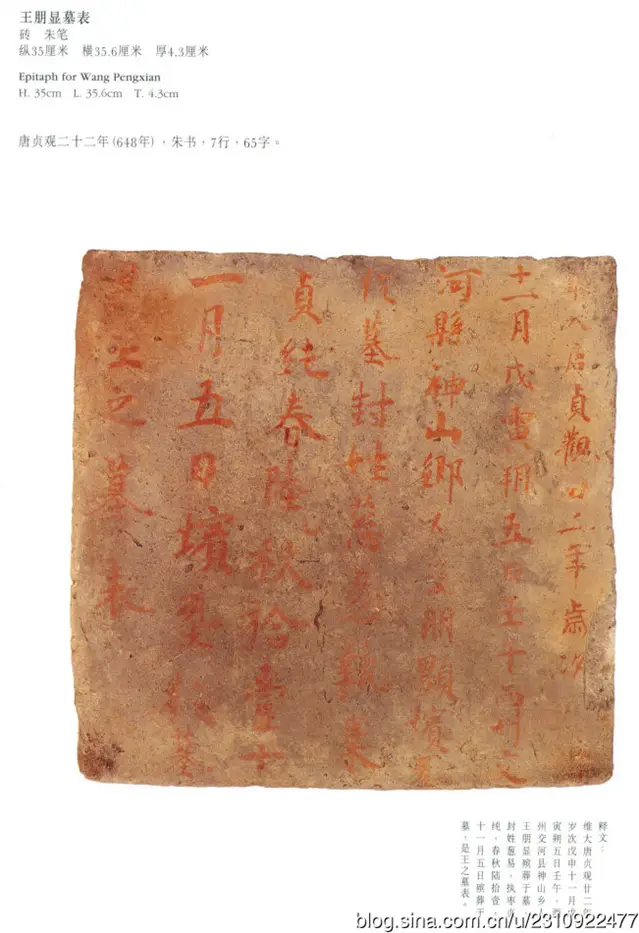 王朋显墓表
砖 朱笔
纵35厘米 横35.6厘米 厚4.3厘米
Epitaph for Wang Pengxian
H. 35cm L. 35.6cm T. 4.3cm
唐贞观二十二年(648年)，朱书，7行，65字。
大唐貞觀廿二年歲次
十一月戊寅朔五日壬午西州交
河縣神山鄉人王朋顯殯葬
於墓封姓
貞純春陸秋拾壹十
一月五日殯葬於墓
是王之墓表
释文：
维大唐贞观廿二年
岁次戊申十一月戊
寅朔五日壬午，西
州交河县神山乡人
王朋显殡葬于墓，
封姓葱易，执枣贞
纯，春秋陆拾壹，
十一月五日殡葬于
墓，是王之墓表。
blog.sina.com.cn/u/2310922477